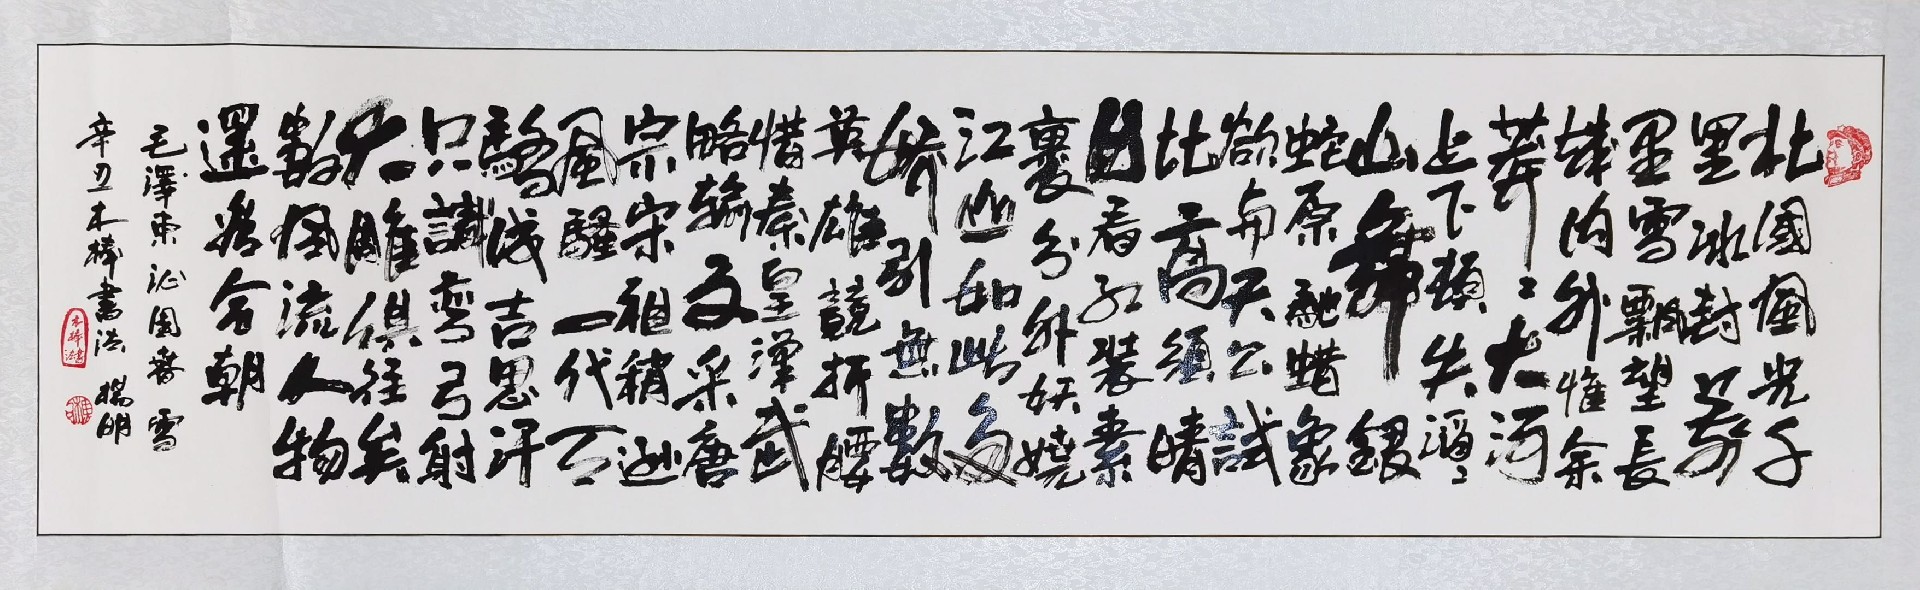 北國風光千
里冰封萬
里雪飄望長
城内外惟余
莽〻大河
上下頓失滔〻
山舞銀
蛇原馳蜡象
欲与天公試
比高須晴
日看红裝素
裹分外妖嬈
江山如此多
嬌引無數
英雄競折腰
惜秦皇漢武
略輸文采唐
宗宋祖稍遜
風騷一代天
驕成吉思汗
只識彎弓射
大雕俱往矣
數風流人物
還看今朝
毛澤東沁園春雪
辛丑木棒書法 楊明